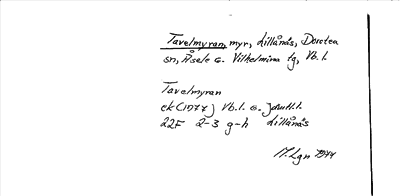 Tavelmyran, myr, Lillånäs, Dorotea
sn, Åsele o. Vilhelmina tg, Vb. l.
Tavelmyran
ek (1977) Vb. l. o. Jämtl. l.
22F 2-3 g-h Lillånäs
M. Lgn 1974